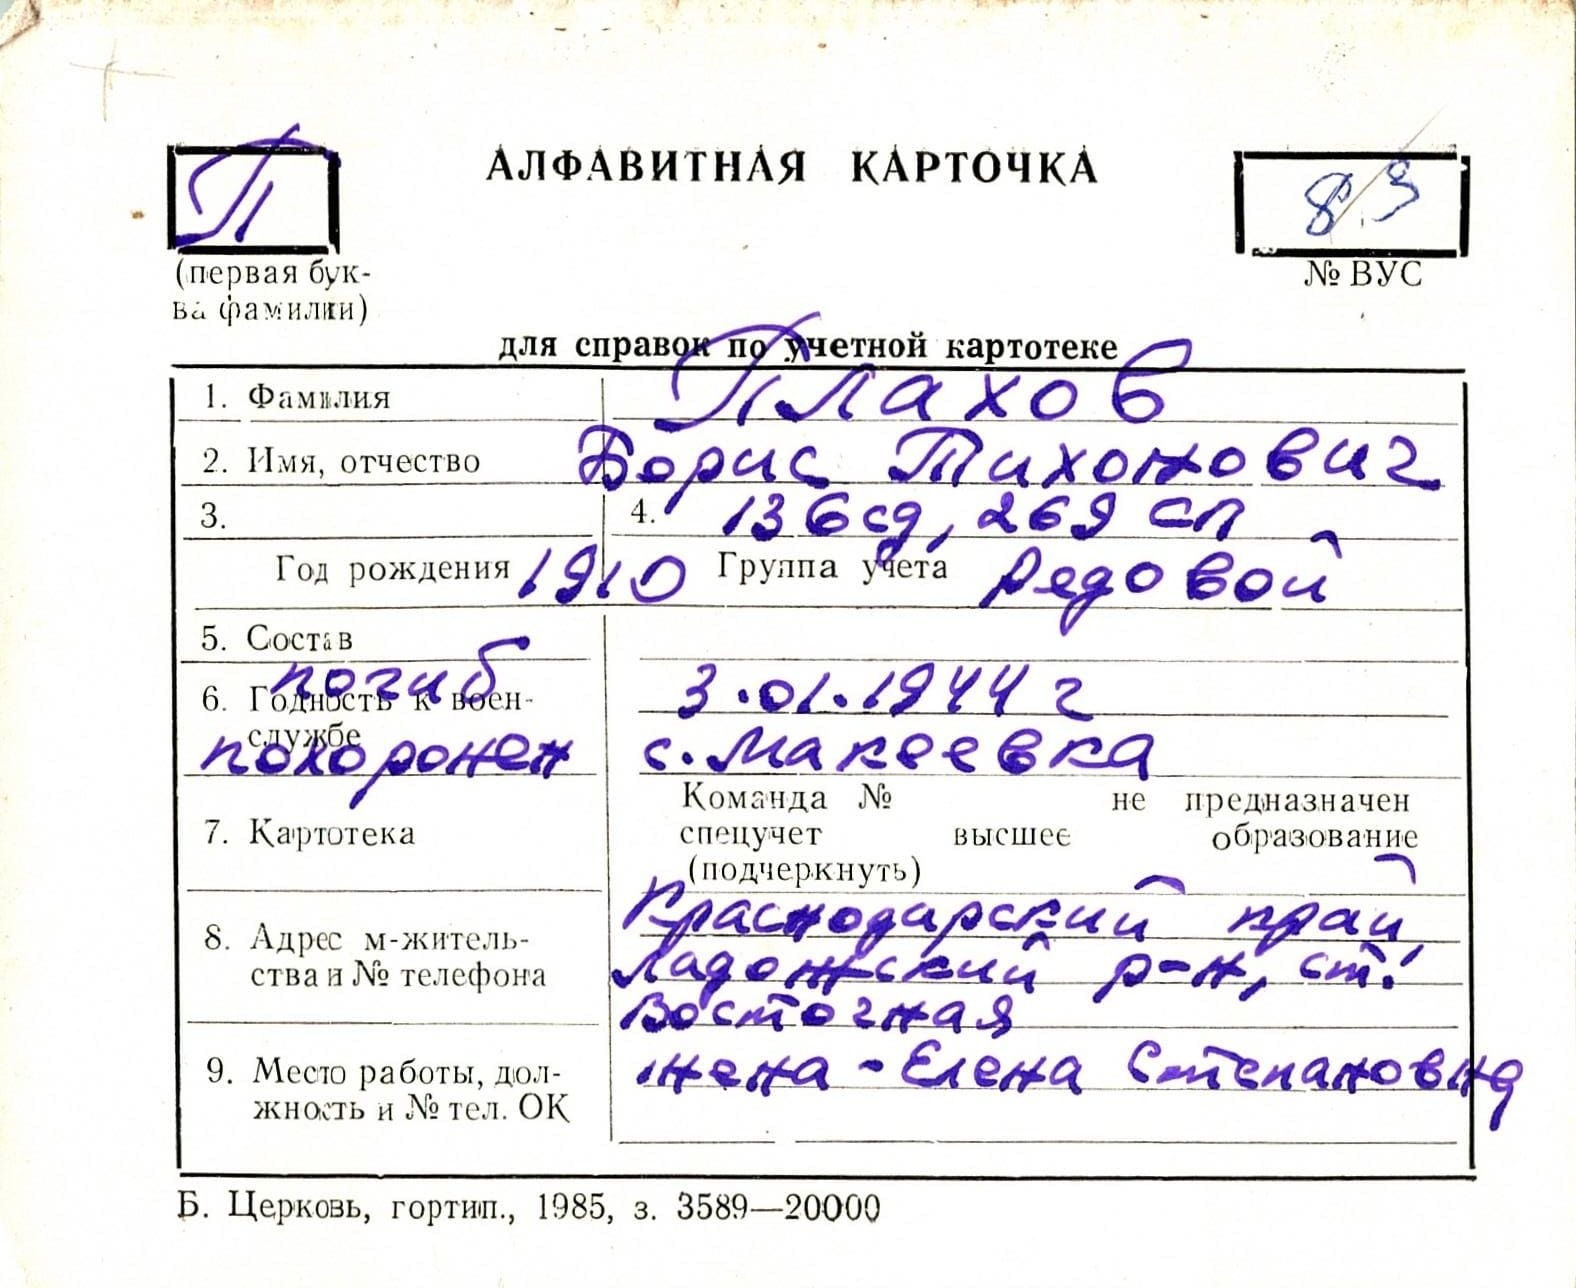 П
АЛФАВИТНАЯ КАРТОЧКА
8.9
(первая бук-
ва фамилии)
№ ВУС
для справок по учетной картотеке
1. Фамилия Плахов
2. Имя, отчество Борис Тихонович
3. 4. 136сд, 269 сп
Год рождения 1910 Группа учета рядовой
5. Состав
погиб 3.01.1944 г
6. Годность к воен-
службе
похоронен с. Макеевка
Команда № не предназначен
7. Картотека спецучет высшее образование
(подчеркнуть)
Краснодарский край
8. Адрес м-житель-
ства и № телефона
Ладожский р-н, ст.
Восточная
9. Место работы, дол-
жность и № тел. ОК
жена - Елена Степановна
Б. Церковь, гортип., 1985, з. 3589—20000